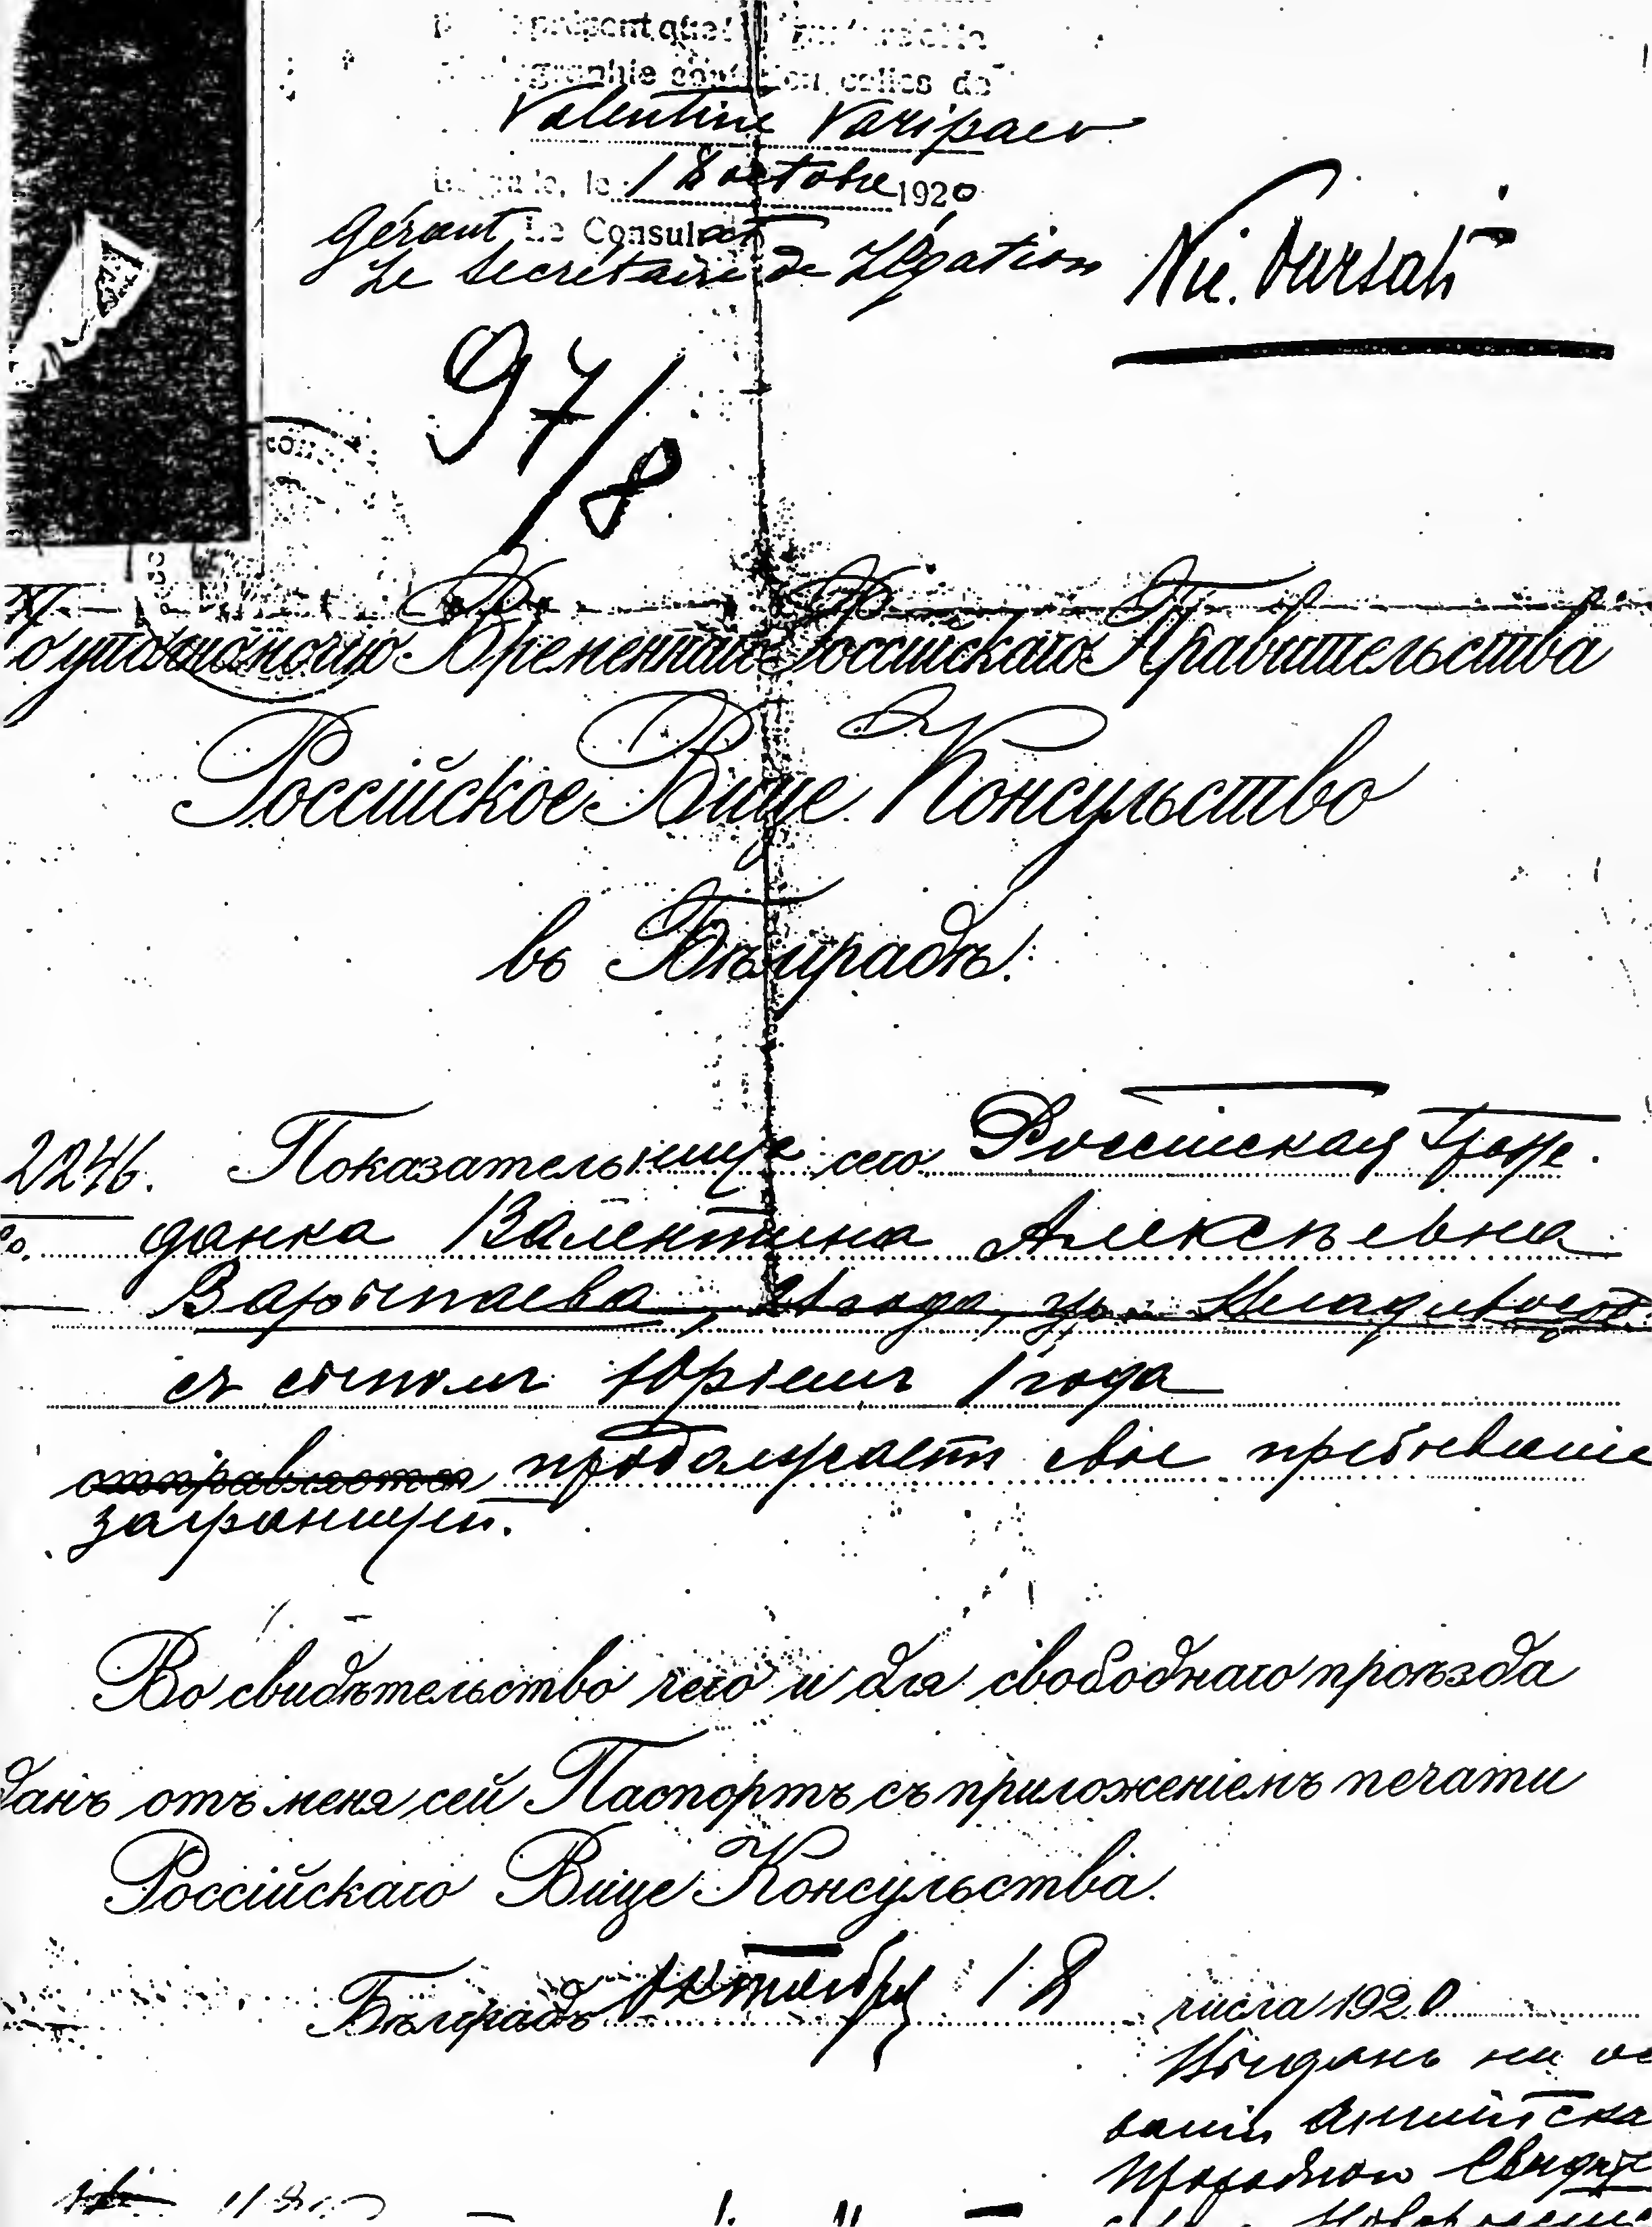 présent que
graphie sont celles de
Valentine Varipaev
le 18 octobre 1920
Gérant Le Consulat
Le Secrétaire de Légation
97/8
По уполномочію Временнаго Россійскаго Правительства
Россійское Вице Консульство
въ Бѣлградѣ.
2246. Показательница сего Россійская Граж
данка Валентина Алексѣевна
Варыпаева, 21 года,
съ сыномъ Юріемъ 1 года
отправляется продолжаетъ свое пребываніе
заграницей.
Во свидѣтельство чего и для свободнаго проѣзда
данъ отъ меня сей Паспортъ съ приложеніемъ печати
Россійскаго Вице Консульства.
Бѣлградъ Октября 18 числа 1920
Выданъ на ос
ваніи Англійска